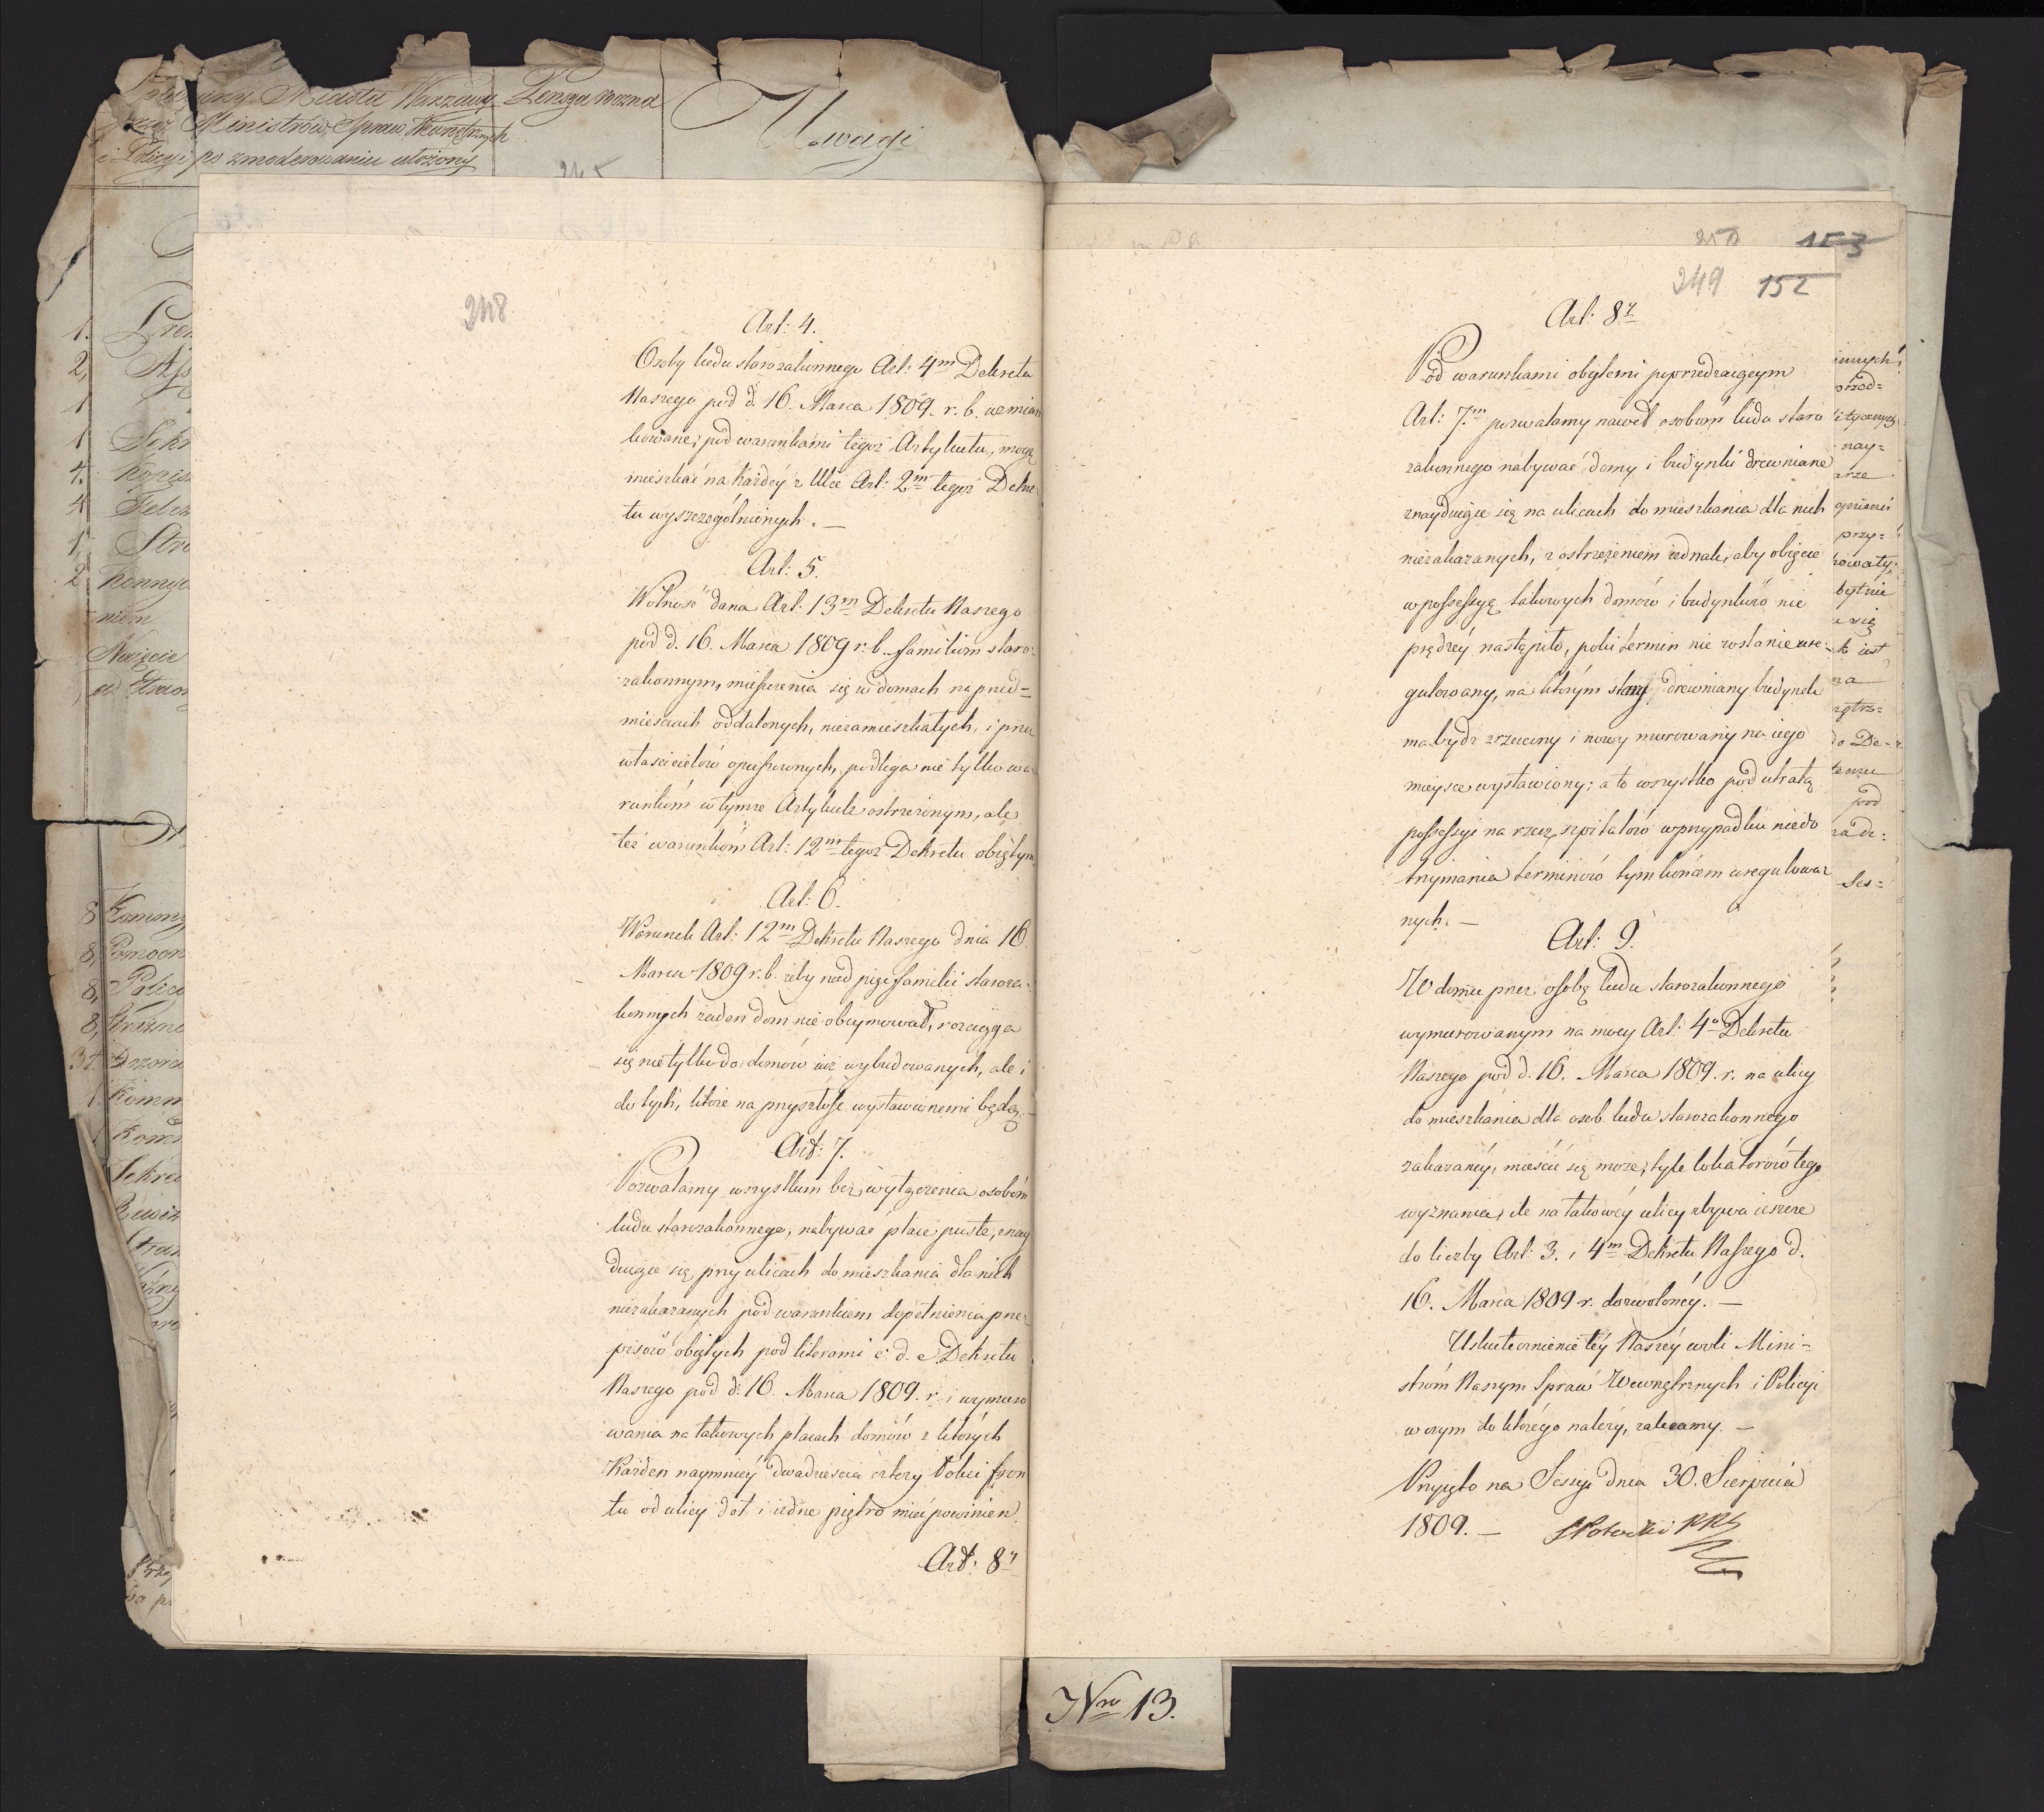 Policyiny Miasta Warszawy
przez Ministrów Spraw Wewnętrznych
i Policyi po zmoderowaniu ułożony
Pensya roczna
Uwagi
245
248
Art: 4.
Osoby ludu starozakonnego Art: 4m Dekretu
Naszego pod d. 16. Marca 1809. r. b. wymian
kowane, pod warunkami tegoż Artykułu, mogą
mieszkać na każdéy z Ulic Art: 2m tegoż Dekre
tu wyszczególnionych. —
Art: 5.
Wolność dana Art: 13m Dekretu Naszego
pod d. 16. Marca 1809 r. b. familiom staro-
zakonnym, mieszczenia się w domach na pned=
mieściach oddalonych, niezamieszkałych, i pnez
właścicielów opuszczonych, podlega nie tylko wa-
runkóm w tymże Artykule ostrzeżonym, ale
też warunkóm Art: 12m tegoż Dekretu obiętym.
Art: 6.
Warunek Art: 12m Dekretu Naszego dnia 16.
Marca 1809 r. b. żeby nad pięć familii staroza-
konnych żaden dom nie obeymował, rozciąga
się nie tylko do domów iuż wybudowanych, ale i
do tych, które na pnyszłość wystawionemi będą. —
Art: 7.
Pozwalamy wszystkim bez wyłączenia osobóm
ludu starozakonnego, nabywać place puste, znay
duiące się pny ulicach do mieszkania dla nich
niezakazanych pod warunkiem dopełnienia pne-
pisów obiętych pod literami c. d. e. Dekretu
Naszego pod d. 16. Marca 1809. r. i wymuro
wania na takowych placach domów z których
Każden naymniéy dwadzieścia cztery łokci fron
tu od ulicy dół i iedne piętro mieć powinien.
Art: 8y
250 153
249 152
Art: 8y
Pod warunkami obiętemi popnedzaiącym
Art: 7.m pozwalamy nawet osobóm ludu staro
zakonnego nabywać domy i budynki drewniane
znayduiące się na ulicach do mieszkania dla nich
niezakazanych, z ostrzeżeniem iednak, aby obięcie
w possessyą takowych domów i budynków nie
prędzéy nastąpiło, póki termin nie zostanie ure-
gulowany, na którym stary drewniany budynek
ma bydź zrzucony i nowy murowany na iego
mieysce wystawiony; a to wszystko pod utratą
possessyi na rzecz szpitalów w pnypadku niedo
tnymania terminów tym końcem uregulowa-
nych. —
Art: 9.
W domu pnez osobę ludu starozakonnego
wymurowanym na mocy Art: 4o Dekretu
Naszego pod d. 16. Marca 1809. r. na ulicy
do mieszkania dla osob ludu starozakonnego
zakazanéy, mieścić się może, tyle lokatorów tego
wyznania, ile na takowéy ulicy zbywa ieszcze
do liczby Art: 3. i 4m Dekretu Naszego d.
16. Marca 1809 r. dozwolonéy. —
Uskutecznienie téy Naszéy woli Mini-
stróm Naszym Spraw Wewnętrznych i Policyi
w czym do którego należy, zalecamy. —
Pnyięto na Sessyi dnia 30. Sierpnia
1809. — S Potocki
Nro 13.